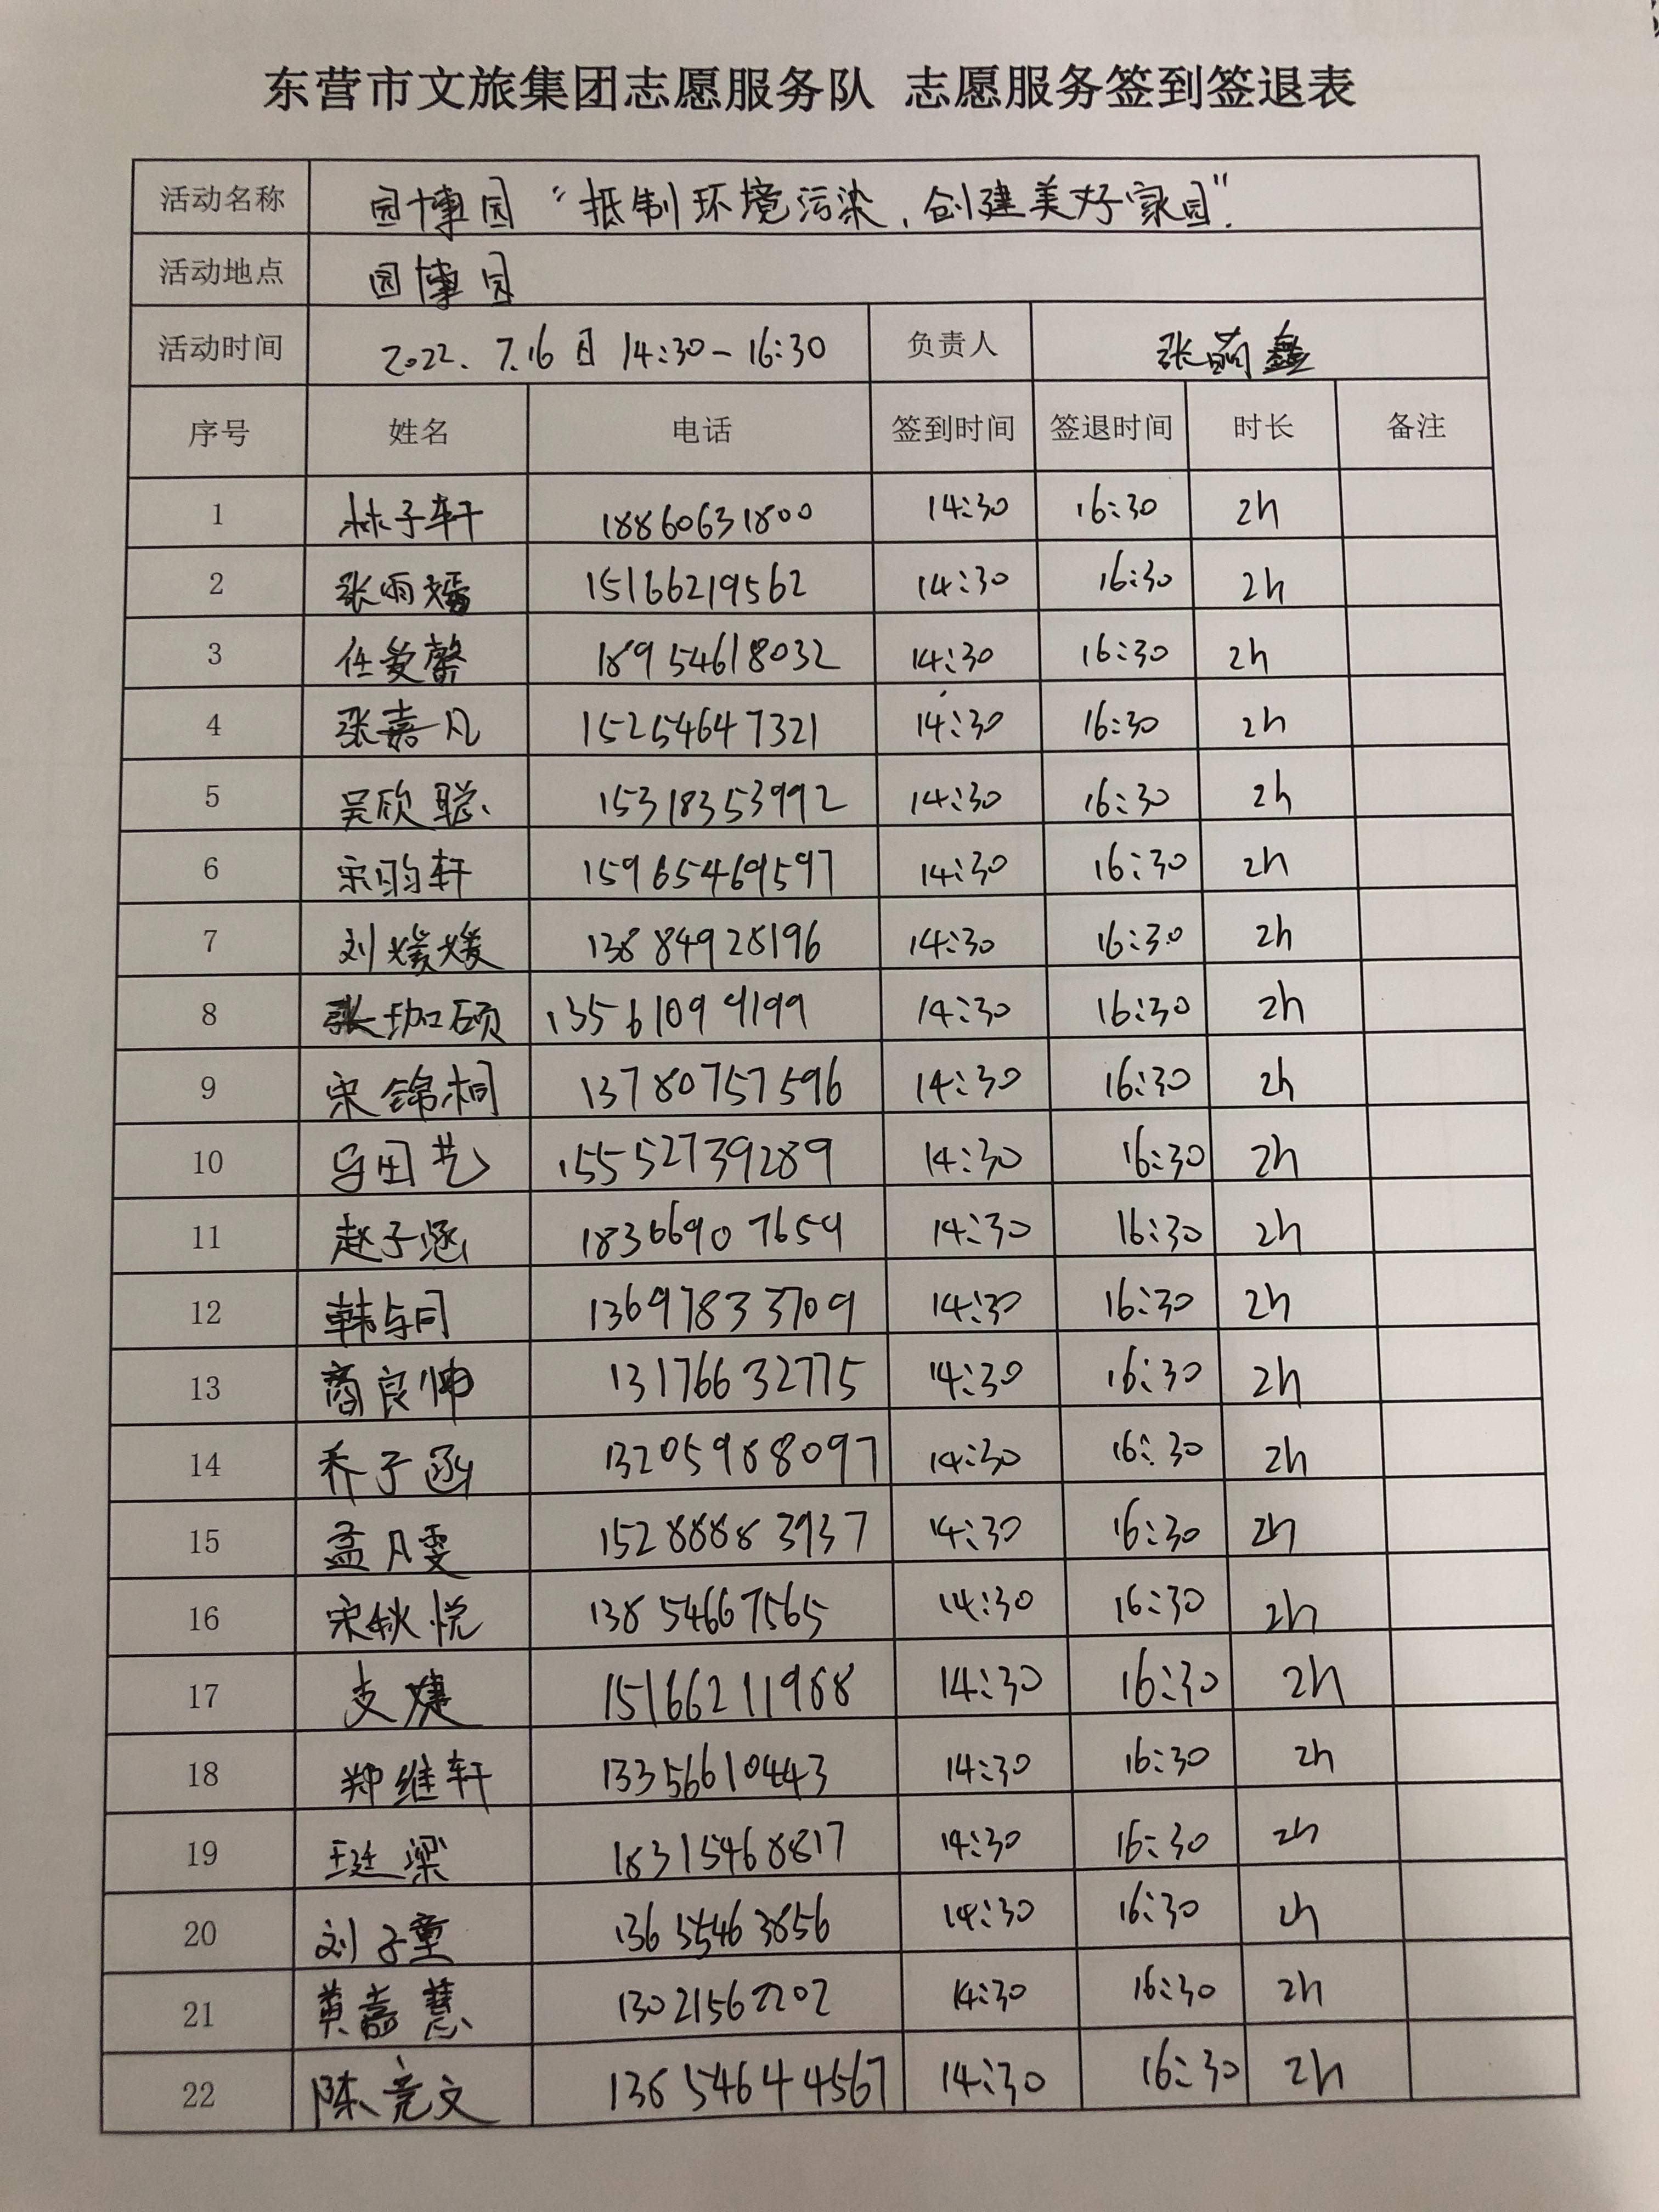 东营市文旅集团志愿服务队 志愿服务签到签退表
活动名称 园博园“抵制环境污染,创建美好家园”.
活动地点 园博园
活动时间 2022.7.16日 14:30-16:30 负责人 张萌鑫
序号 姓名 电话 签到时间 签退时间 时长 备注
1 林子轩 18860631800 14:30 16:30 2h
2 张雨嫣 15166219562 14:30 16:30 2h
3 任 馨 18954618032 14:30 16:30 2h
4 张嘉凡 15254647321 14:30 16:30 2h
5 吴欣聪 15318353992 14:30 16:30 2h
6 宋昀轩 15965469597 14:30 16:30 2h
7 刘媛媛 13884928196 14:30 16:30 2h
8 张珈硕 13561099199 14:30 16:30 2h
9 宋锦桐 13780757596 14:30 16:30 2h
10 田艺 15552739289 14:30 16:30 2h
11 赵子涵 18366907659 14:30 16:30 2h
12 韩与同 13697833709 14:30 16:30 2h
13 商良帅 13176632775 14:30 16:30 2h
14 乔子函 13205988097 14:30 16:30 2h
15 孟凡雯 15288883937 14:30 16:30 2h
16 宋秋悦 13854667565 14:30 16:30 2h
17 支婕 15166211988 14:30 16:30 2h
18 郑继轩 13356610443 14:30 16:30 2h
19 王廷梁 18315468817 14:30 16:30 2h
20 刘子童 13655463856 14:30 16:30 2h
21 黄嘉慧 13021562202 14:30 16:30 2h
22 陈竞文 13654644567 14:30 16:30 2h